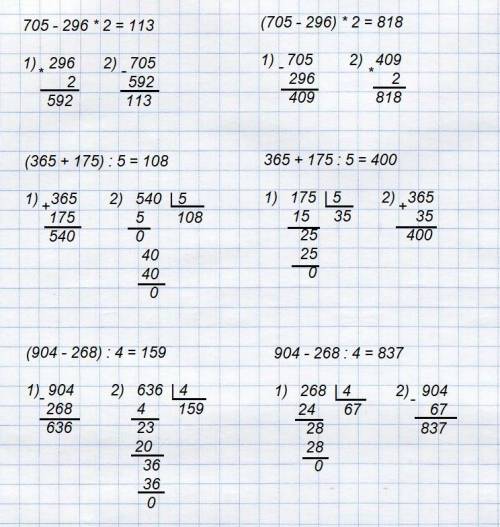 705 - 296 * 2 = 113
1) * 296
2
592
2) - 705
592
113
(705 - 296) * 2 = 818
1) - 705
296
409
2) * 409
2
818
(365 + 175) : 5 = 108
1) + 365
175
540
2) 540 5
5 108
0
40
40
0
365 + 175 : 5 = 400
1) 175 5
15 35
25
25
0
2) + 365
35
400
(904 - 268) : 4 = 159
1) - 904
268
636
2) 636 4
4 159
23
20
36
36
0
904 - 268 : 4 = 837
1) 268 4
24 67
28
28
0
2) - 904
67
837